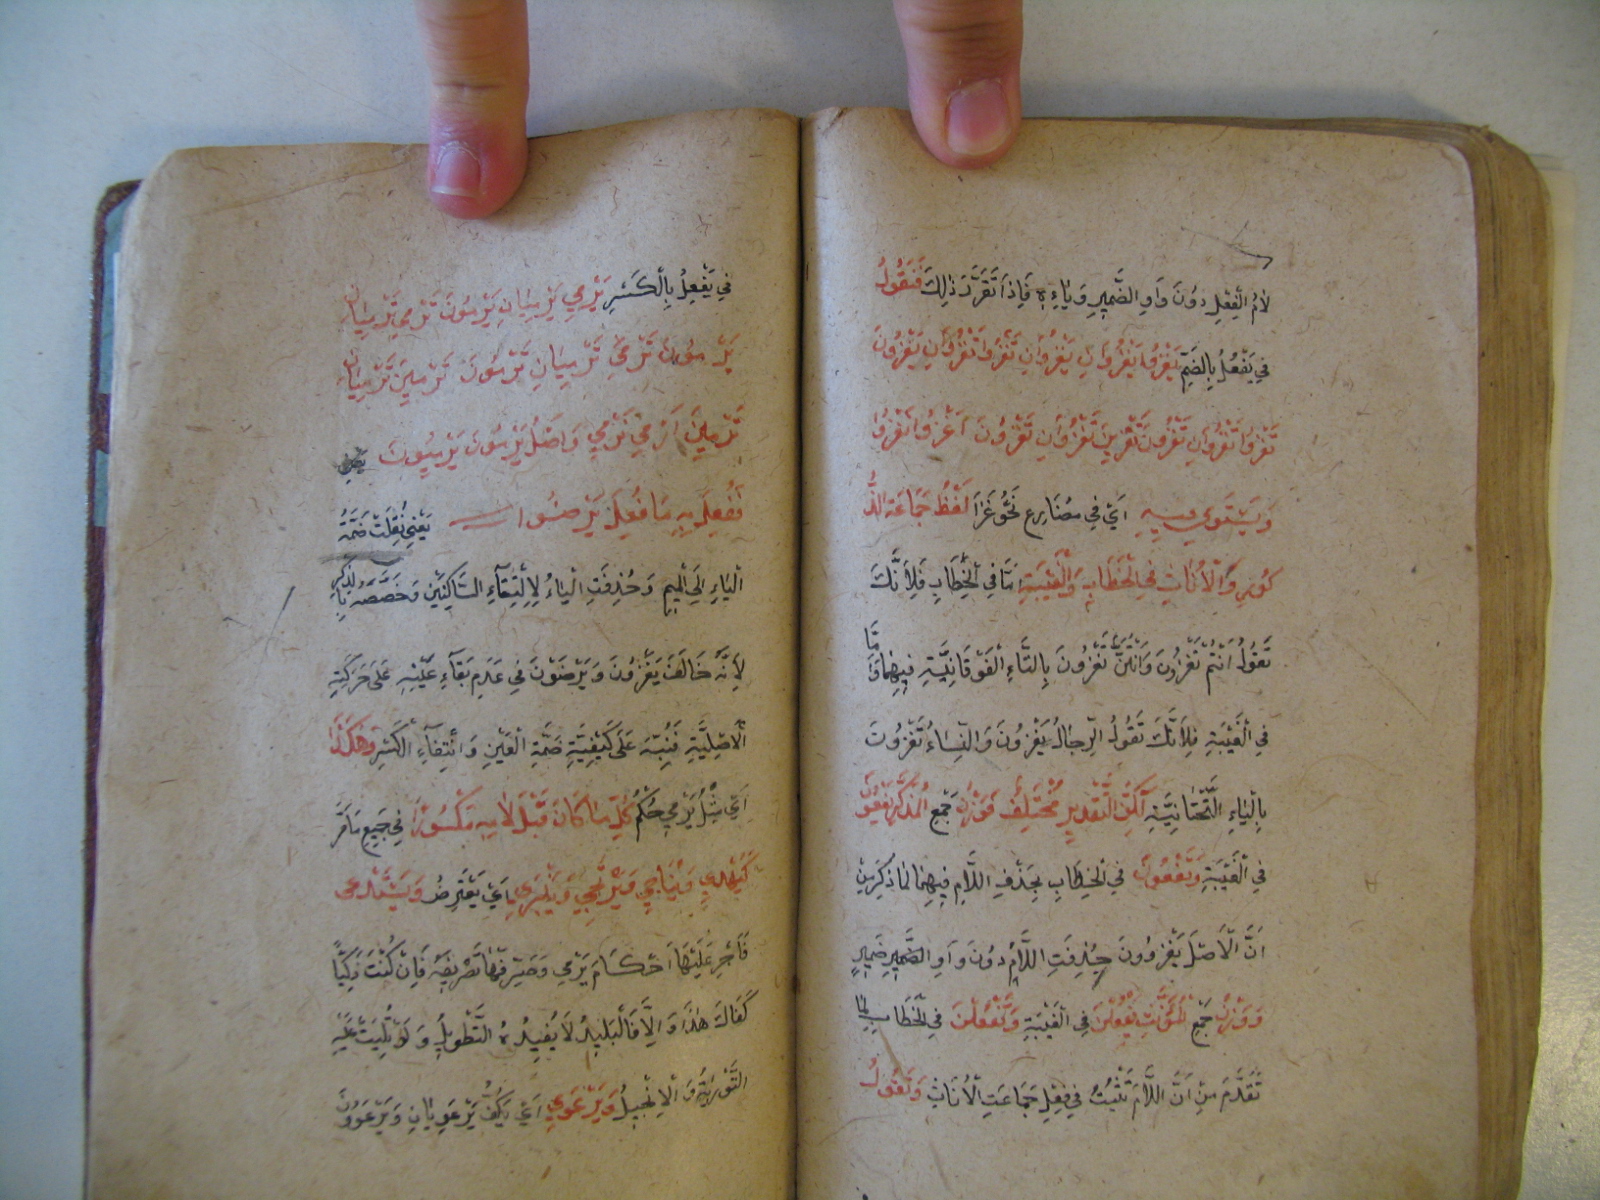 لَامُ الْفِعْلِ دُونَ وَاوِ الضَّمِيرِ وَيَاءِهِ فَإِذَا تَقَرَّرَ ذٰلِكَ فَتَقُولُ
فِي يَفْعُلُ بِالضَّمِّ يَغْزُو يَغْزُوَانِ يَغْزُونَ تَغْزُو تَغْزُوَانِ يَغْزُونَ
تَغْزُو تَغْزُوَانِ تَغْزُونَ تَغْزِينَ تَغْزُوَانِ تَغْزُونَ أَغْزُو نَغْزُو
وَيَسْتَوِي فِيهِ أَيْ فِي مُضَارِعِ نَحْوُ غَزَا لَفْظُ جَمَاعَةِ الذُّ
كُورِ وَالْاُنَاثِ فِي الْخِطَابِ وَالْغَيْبَةِ اَمَّا فِي الْخِطَابِ فَلِأَنَّكَ
تَقُولُ اَنْتُمْ تَغْزُونَ وَاَنْتُنَّ تَغْزُونَ بِالتَّاءِ الْفَوْقَانِيَّةِ فِيهِمَا وَأَمَّا
فِي الْغَيْبَةِ فَلِاَنَّكَ تَقُولُ الرِّجَالُ يَغْزُونَ وَالنِّسَاءُ تَغْزُونَ
بِالْيَاءِ التَّحْتَانِيَّةِ لٰكِنَّ التَّقْدِيرَ مُخْتَلِفٌ فَوَزْنُ جَمْعِ الْمُذَكَّرِ يَفْعُونَ
فِي الْغَيْبَةِ وَتَفْعُونَ فِي الْخِطَابِ بِحَذْفِ اللَّامِ فِيهِمَا لِمَا ذُكِرَ مِنْ
اَنَّ الْاَصْلَ يَغْزُوُونَ حُذِفَتِ اللَّامُ دُونَ وَاوِ الضَّمِيرِ ضَمِيرٍ
وَوَزْنُ جَمْعِ الْمُؤَنَّثِ يَفْعُلْنَ فِي الْغَيْبَةِ وَتَفْعُلْنَ فِي الْخَطَابِ لِمَا
تَقَدَّمَ مِنْ اَنَّ اللَّامَ تَثْبُتُ فِي فِعْلِ جَمَاعَتِ الْاُنَاثِ وَتَقُولُ
فِي يَفْعِلُ بِالْكَسْرِ يَرْمِي يَرْمِيَانِ يَرْمُونَ تَرْمِي تَرْمِيَانِ
يَرْمِينَ تَرْمِي تَرْمِيَانِ تَرْمُونَ تَرْمِينَ تَرْمِيَانِ
تَرْمِينَ اَرْمِي نَرْمِي وَاَصْلُ يَرْمُونَ يَرْمِيُونَ
فَفُعِلَ بِهِ مَا فُعِلَ بِرَضُوا يَعْنِي نُقِلَتْ ضَمَّةُ
الْيَاءِ اِلَى الْمِيمِ وَحُذِفَتِ الْيَاءُ لِاِلْتِقَاءِ السَّاكِنَيْنِ وَخَصَّصَهُ بِالذِّكْرِ
لِاَنَّهُ خَالَفَ يَغْزُونَ وَيَرْضَوْنَ فِي عَدَمِ بَقَاءِ عَيْنِهِ عَلَى حَرَكَتِهِ
الْاَصْلِيَّةِ فَنَبَّهَ عَلَى كَيْفِيَّةِ ضَمَّةِ الْعَيْنِ وَانْتِفَاءِ الْكَسْرِ وَهٰكَذَا
اَيْ مِثْلُ يَرْمِي حُكْمُ كُلِّ مَا كَانَ قَبْلَ لَامِهِ مَكْسُورًا فِي جَمِيعِ مَا مَرَّ
كَيُهْدِي وَيُنَاجِي وَيَرْتَجِي وَيَنْبَرِي اَيْ يَعْتَرِضُ وَيَسْتَدْعِي
فَاَجْرِ عَلَيْهَا اَحْكَامَ يَرْمِي وَصَرِّفْهَا تَصْرِيفَهُ فَاِنْ كُنْتَ ذَكِيًّا
كَفَاكَ هٰذَا وَاِلَّا فَالْبَلِيدُ لَا يُفِيدُهُ التَّطْوِيلُ وَلَوْ تُلِيَتْ عَلَيْهِ
التَّوْرَيٰةُ وَالْاِنْجِيلُ وَيَرْعَوِي اَيْ يَكُفُّ يَرْعَوِيَانِ وَيَرْعَوُونَ